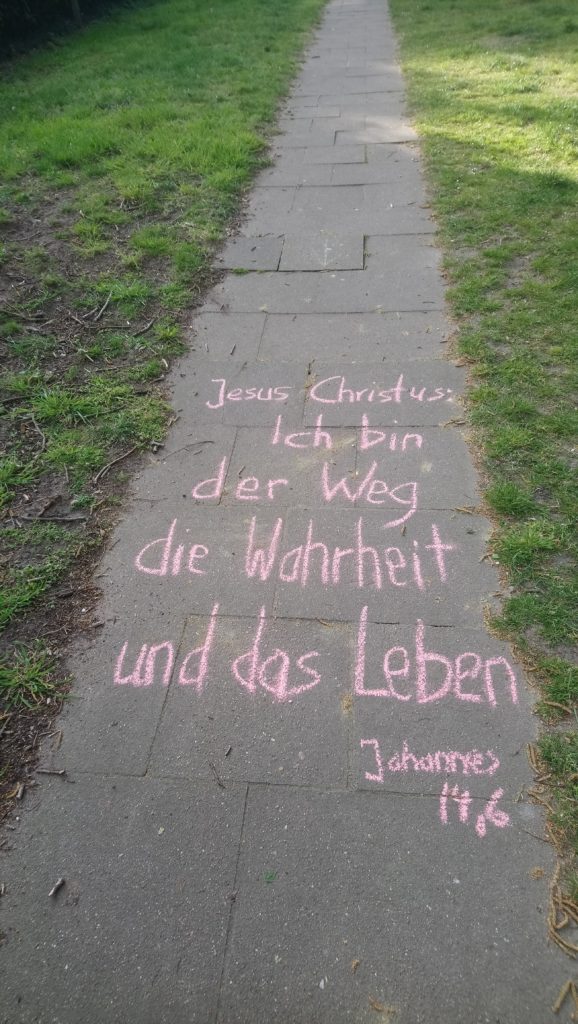 Jesus Christus:
Ich bin
der Weg
die Wahrheit
und das Leben
Johannes
14,6